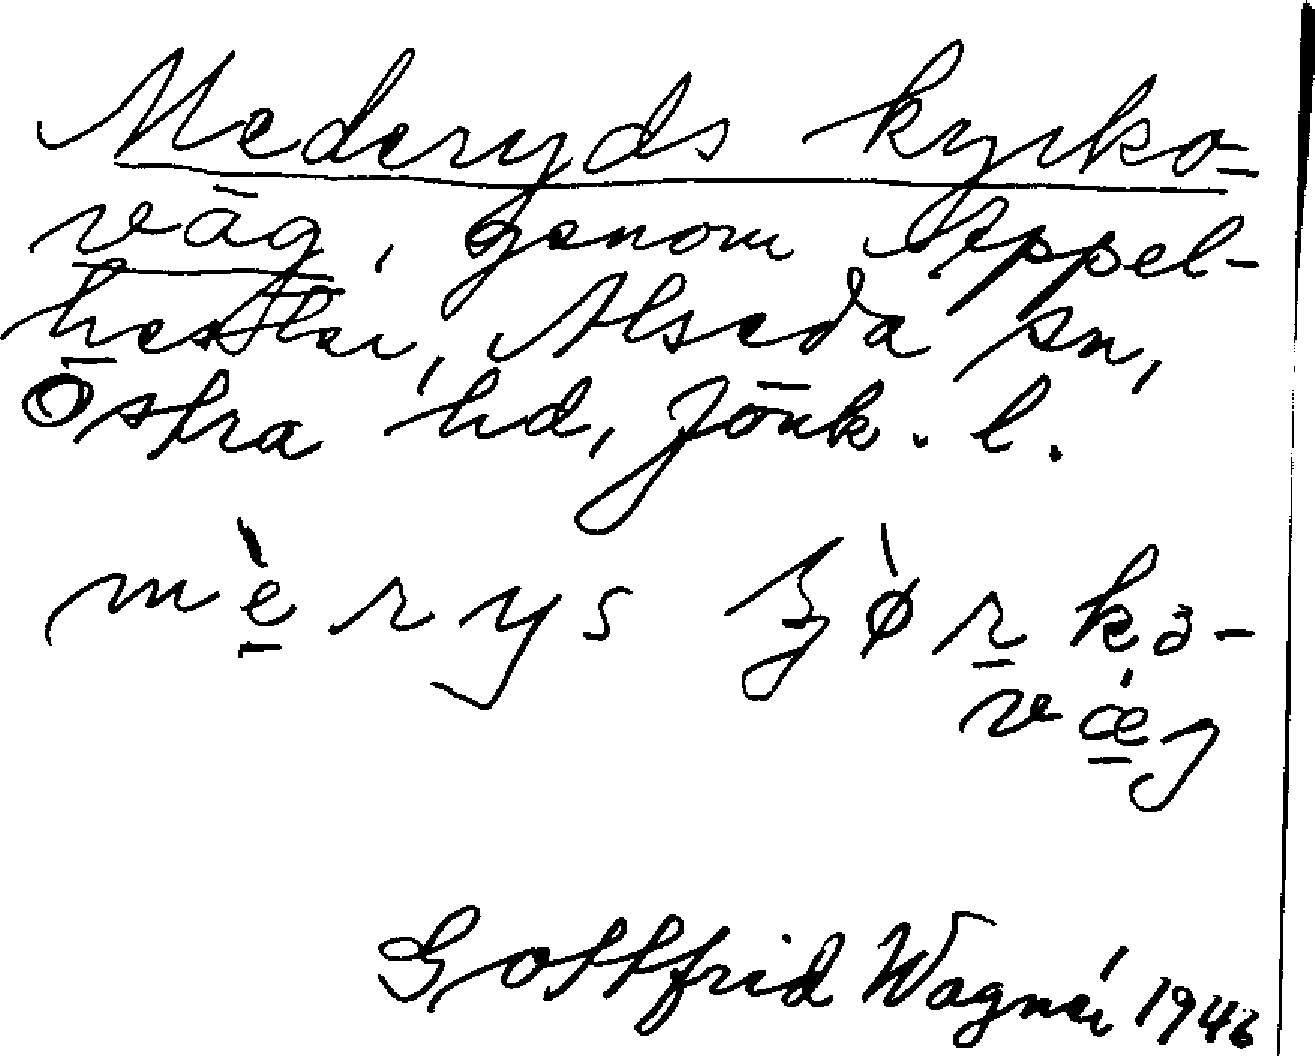 Mederyds kyrko-
väg, genom Appel-
hester, Alseda sn,
Östra hd, Jönk. l.
mèrys ʒø̀rkə-
væg
Gottfrid Wagnér 1946